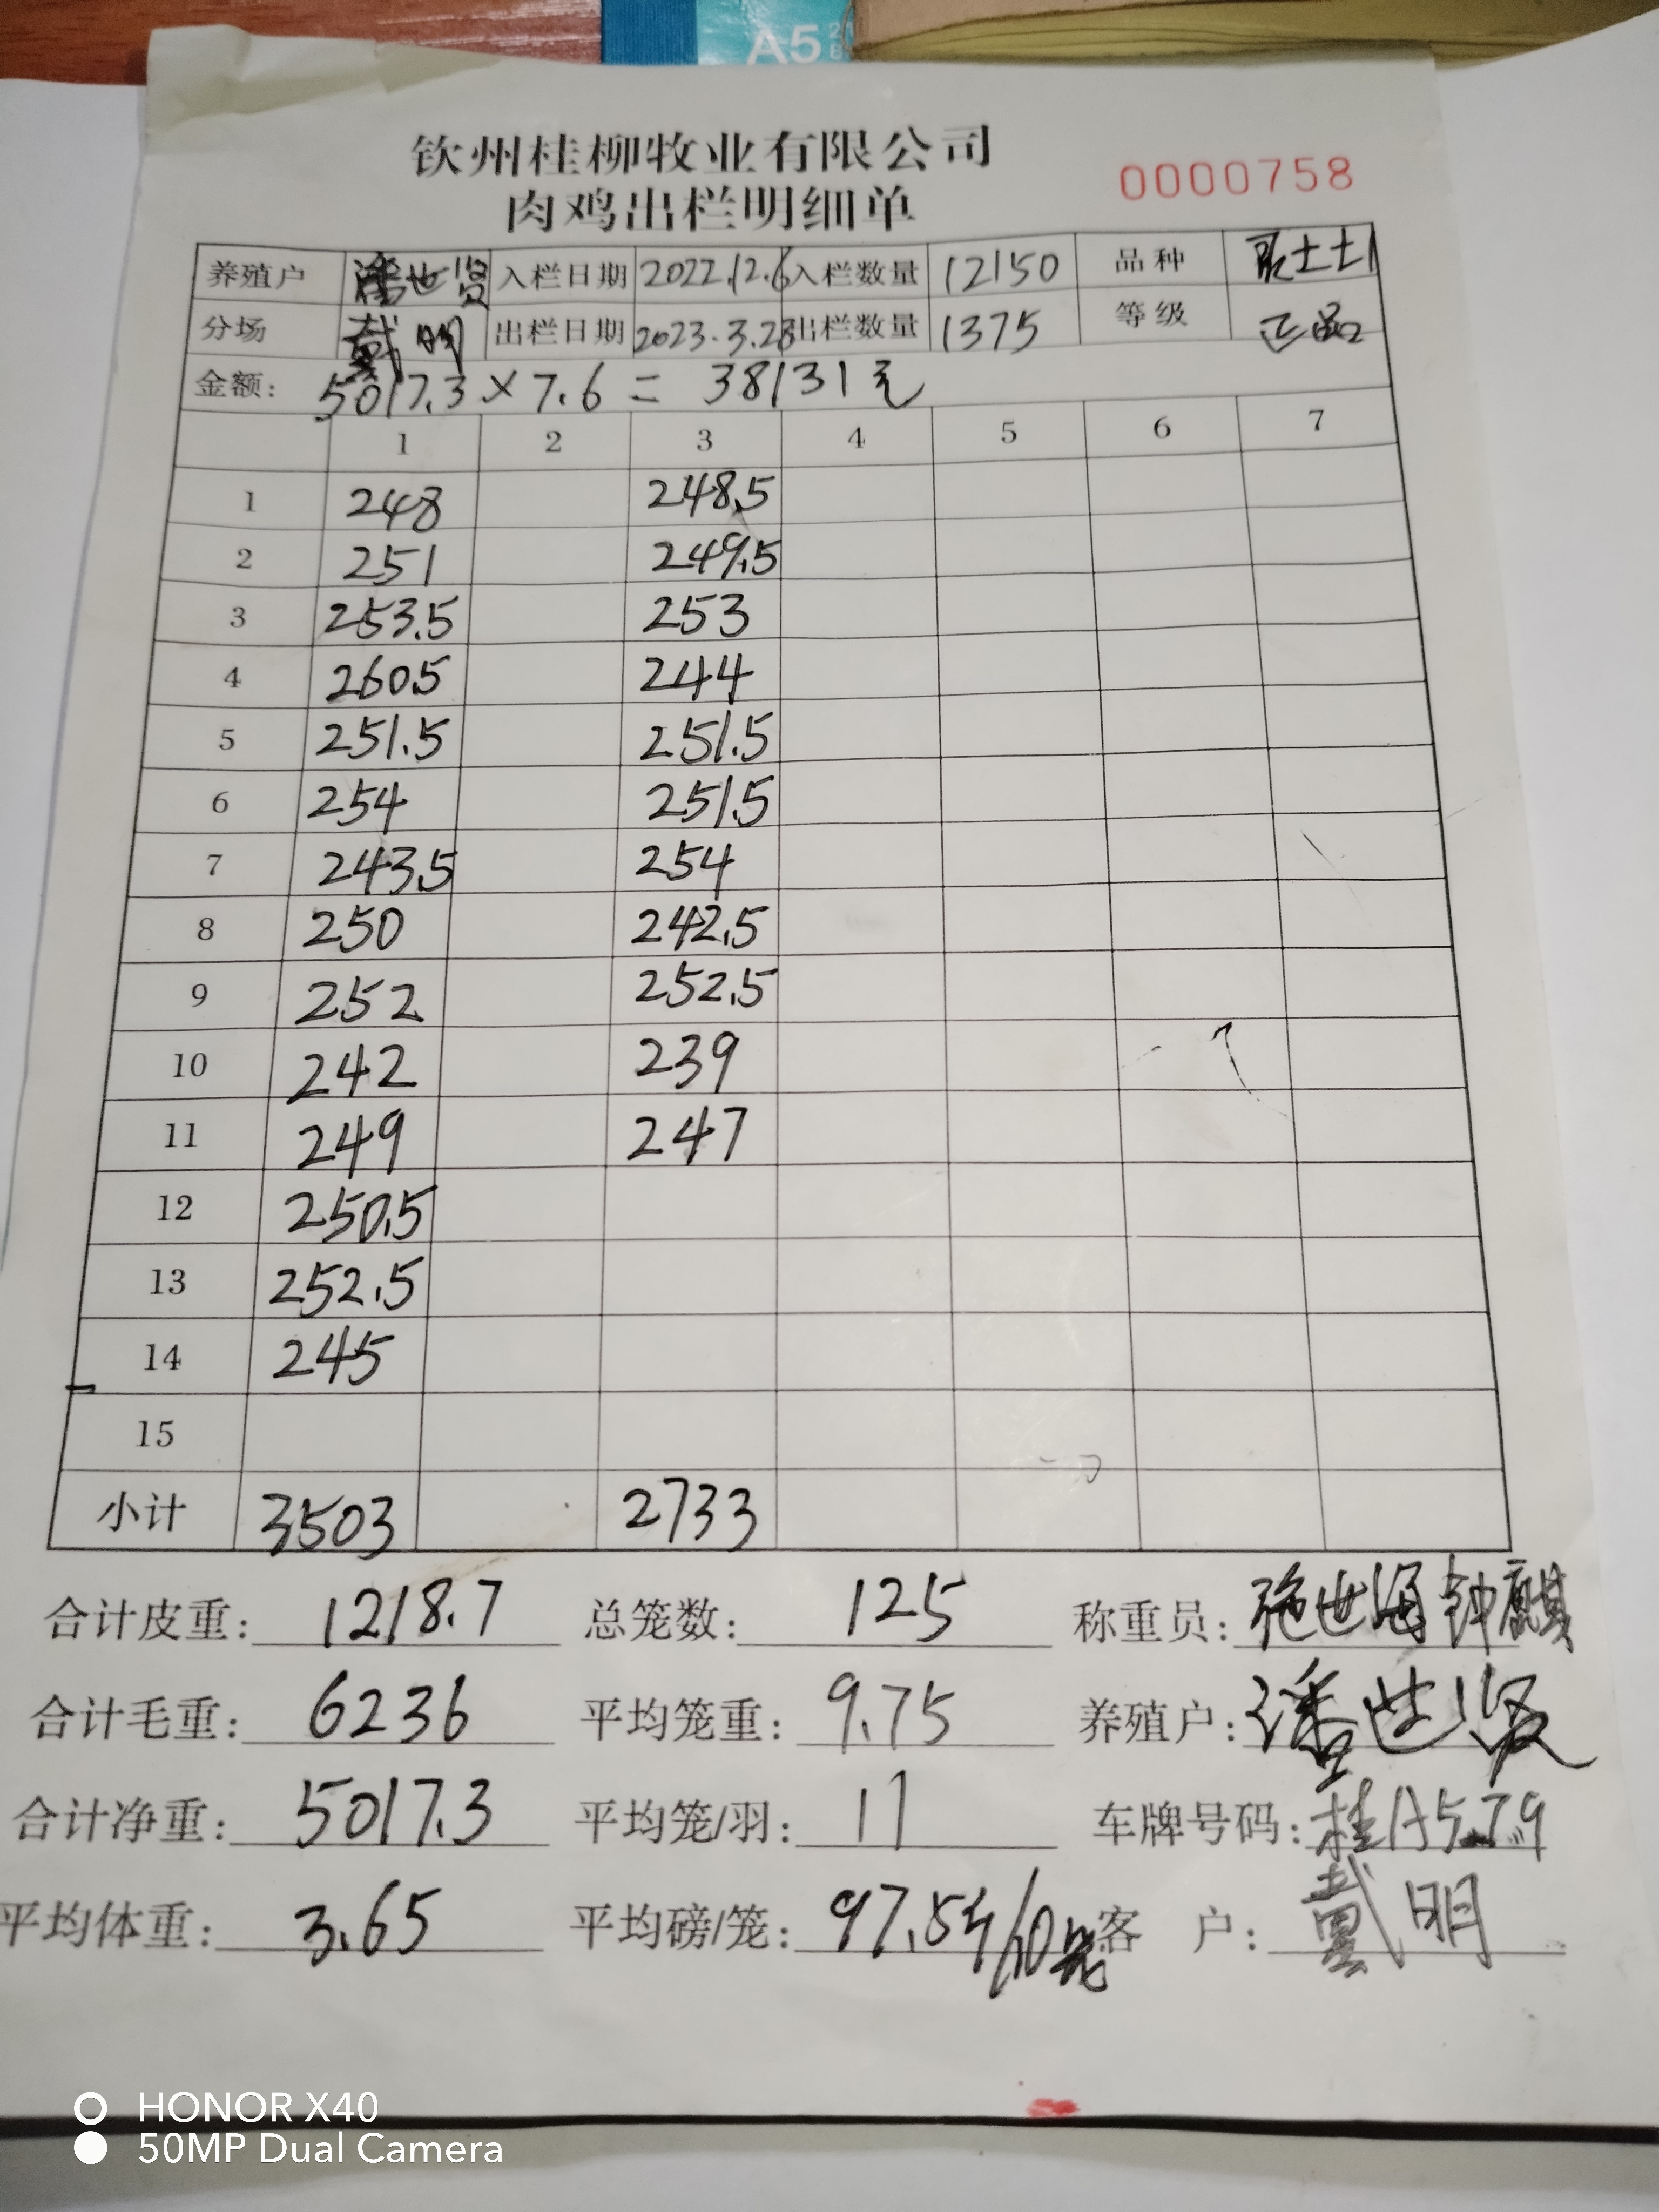 A5
钦州桂柳牧业有限公司
肉鸡出栏明细单 0000758
养殖户 潘世贤 入栏日期 2022.12.6 入栏数量 12150 品种
分场 戴明 出栏日期 2023.3.28 出栏数量 1375 等级 正品
金额: 5017.3×7.6=38131元
1 2 3 4 5 6 7
1 248 248.5
2 251 249.5
3 253.5 253
4 260.5 244
5 251.5 251.5
6 254 251.5
7 243.5 254
8 250 242.5
9 252 252.5
10 242 239
11 249 247
12 250.5
13 252.5
14 245
15
小计 3503 2733
合计皮重: 1218.7 总笼数: 125 称重员: 施世海 钟麒
合计毛重: 6236 平均笼重: 9.75 养殖户: 潘世贤
合计净重: 5017.3 平均笼/羽: 11 车牌号码:
平均体重: 3.65 平均磅/笼: 97.5斤/10笼 客 户: 戴明
HONOR X40
50MP Dual Camera